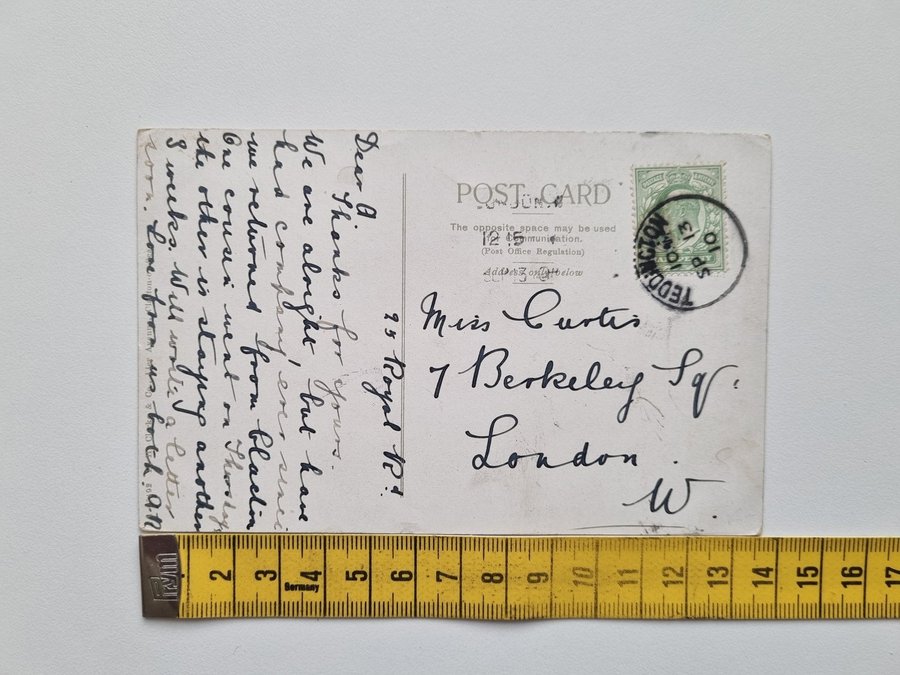 25 Royal Rd.
Dear A
Thanks for yours.
We are alright, but have
had company ever since
we returned from
One cousin went on Thursday
the other is staying another
3 weeks. Will write a letter
soon. Love from us both
POST CARD
The opposite space may be used
for Communication.
(Post Office Regulation)
Address only below
12 15
TEDDINGTON
SP 3
10
Miss Curtis
7 Berkeley Sq.
London.
W.
Germany
2 3 4 5 6 7 8 9 10 11 12 13 14 15 16 17